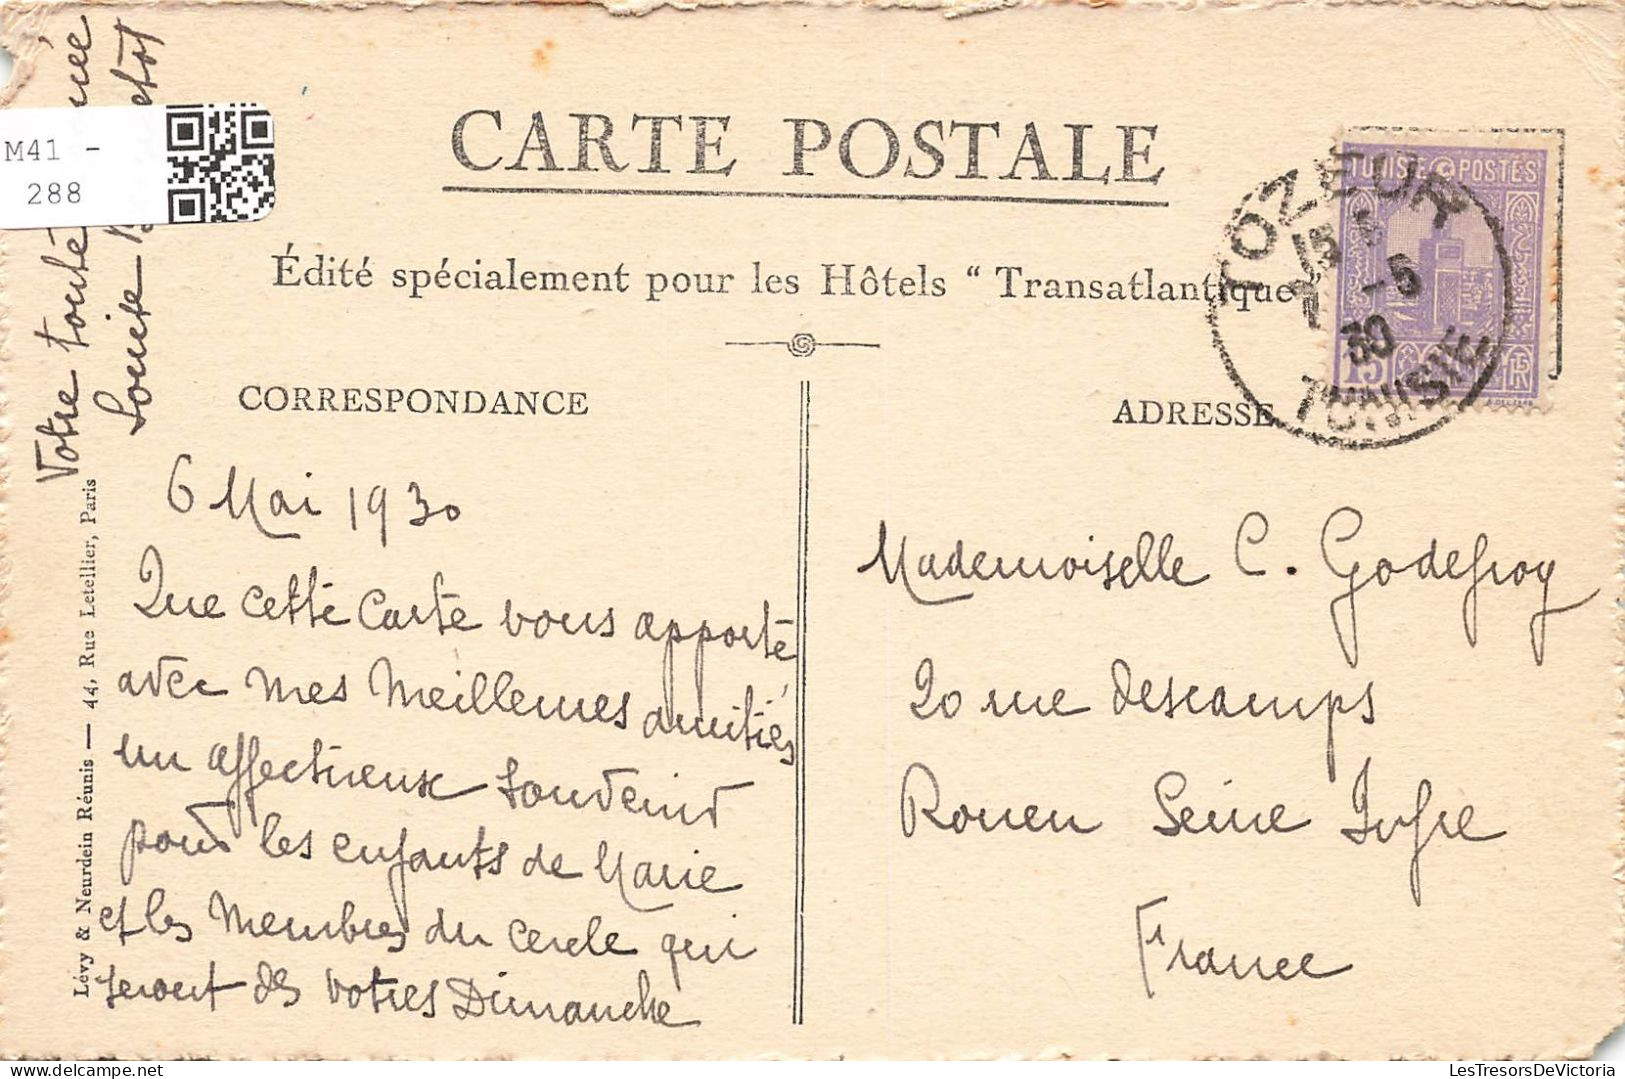 CARTE POSTALE
Édité spécialement pour les Hôtels “ Transatlantique
CORRESPONDANCE
ADRESSE
TUNISIE POSTES
15
TOZEUR
15
-5
30
TUNISIE
6 Mai 1930
Que cette Carte vous apporte
avec mes meilleures amitiés
un affectueux souvenir
pour les enfants de Marie
et les membres du cercle qui
seront des votres Dimanche
Votre toute
Louise
Mademoiselle C. Godefroy
20 rue Descamps
Rouen Seine Infre
France
Lévy & Neurdein Réunis — 44, Rue Letellier, Paris
M41 -
288
LesTresorsDeVictoria